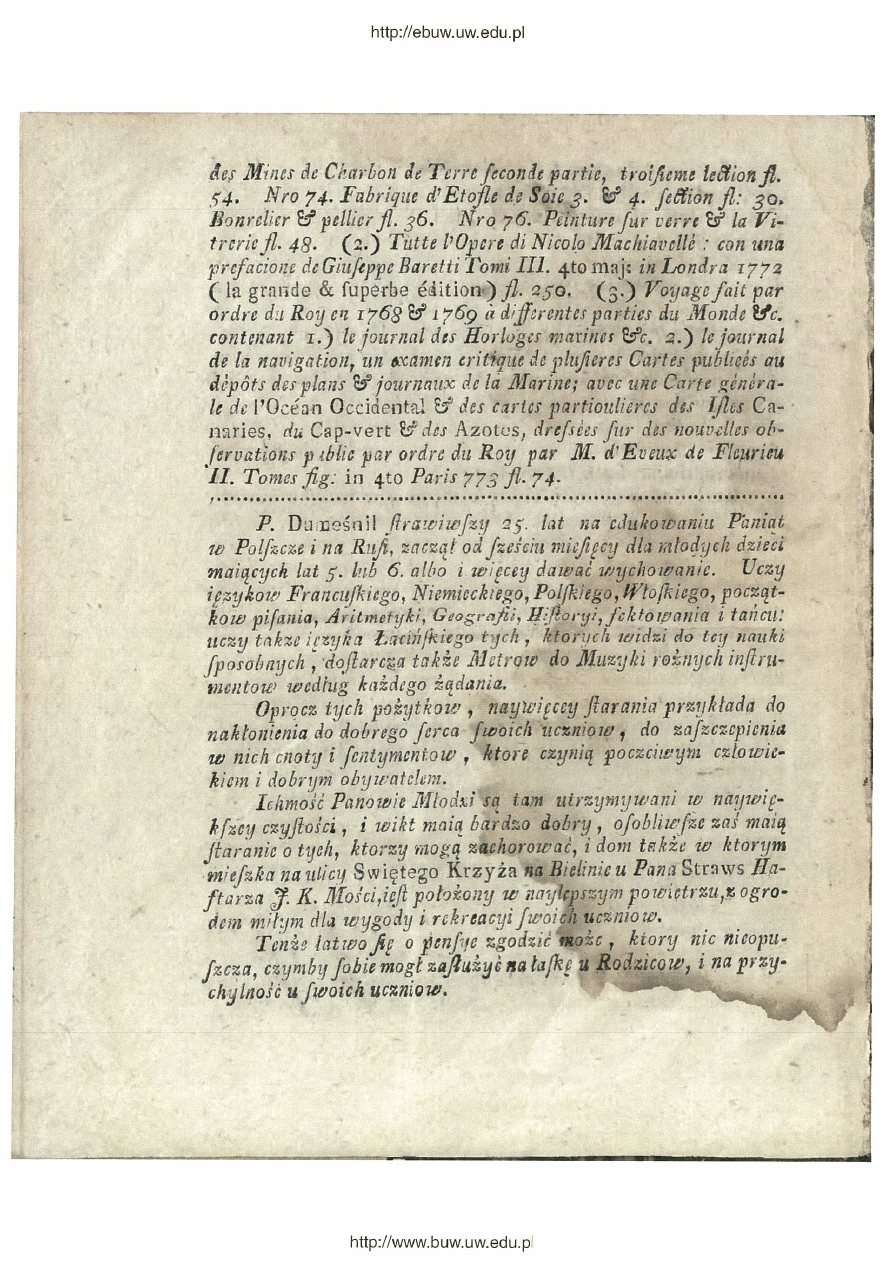 http://ebuw.uw.edu.pl
des Mines de Charbon de Terre ſeconde partie, troiſieme ſection fl.
54. Nro 74. Fabrique d'Etofle de Soie 3. & 4. ſection fl: 30.
Bonrelier & pellier fl. 36. Nro 76. Peinture ſur verre & la Vi-
trerie fl. 48. (2.) Tutte l'Opere di Nicolo Machiavellé : con una
prefacione de Giuſeppe Baretti Tomi III. 4to maj: in Londra 1772
( la grande & ſuperbe édition ) fl. 250. (3.) Voyage fait par
ordre du Roy en 1768 & 1769 à differentes parties du Monde &c.
contenant 1.) le journal des Horloges marines &c. 2.) le journal
de la navigation, un examen critique de pluſieres Cartes publieés au
dépôts des plans & journaux de la Marine; avec une Carte généra-
le de l'Océan Occidental & des cartes partioulieres des Iſles Ca-
naries, du Cap-vert & des Azotes, dreſsées ſur des nouvelles ob-
ſervations public par ordre du Roy par M. d'Eveux de Fleurieu
II. Tomes fig: in 4to Paris 773 fl. 74.
P. Dameśnil ſtrawiwſzy 25. lat na edukowaniu Paniąt
w Polſzcze i na Ruſi, zaczął od ſześciu mieſięcy dla młodych dzieci
maiących lat 5. lub 6. albo i więcey dawać wychowanie. Uczy
ięzykow Francuſkiego, Niemieckiego, Polſkiego, Włoſkiego, począt-
kow piſania, Aritmetyki, Geografii, Hiſtoryi, fektowania i tańcu:
uczy takze ięzyka Łacińſkiego tych, ktorych widzi do tey nauki
ſpoſobnych, doſtarcza także Metrow do Muzyki rożnych inſtru-
mentow według każdego żądania.
Oprocz tych pożytkow, naywięcey ſtarania przykłada do
nakłonienia do dobrego ſerca ſwoich uczniow, do zaſzczepienia
w nich cnoty i ſentymentow, ktore czynią poczciwym człowie-
kiem i dobrym obywatelem.
Ichmość Panowie Młodzi są tam utrzymywani w naywię-
kſzey czyſtości, i wikt maią bardzo dobry, oſobliwſze zaś maią
ſtaranie o tych, ktorzy mogą zachorować, i dom także w ktorym
mieſzka na ulicy Swiętego Krzyża na Bielinie u Pana Straws Ha-
ftarza J. K. Mości, ieſt położony w naylepszym powietrzu, z ogro-
dem miłym dla wygody i rekreacyi ſwoich uczniow.
Tenże łatwo ſię o penſye zgodzić może, ktory nic nieopu-
ſzcza, czymby ſobie mogł zaſłużyć na łaſkę u Rodzicow, i na przy-
chylność u ſwoich uczniow.
http://www.buw.uw.edu.pl